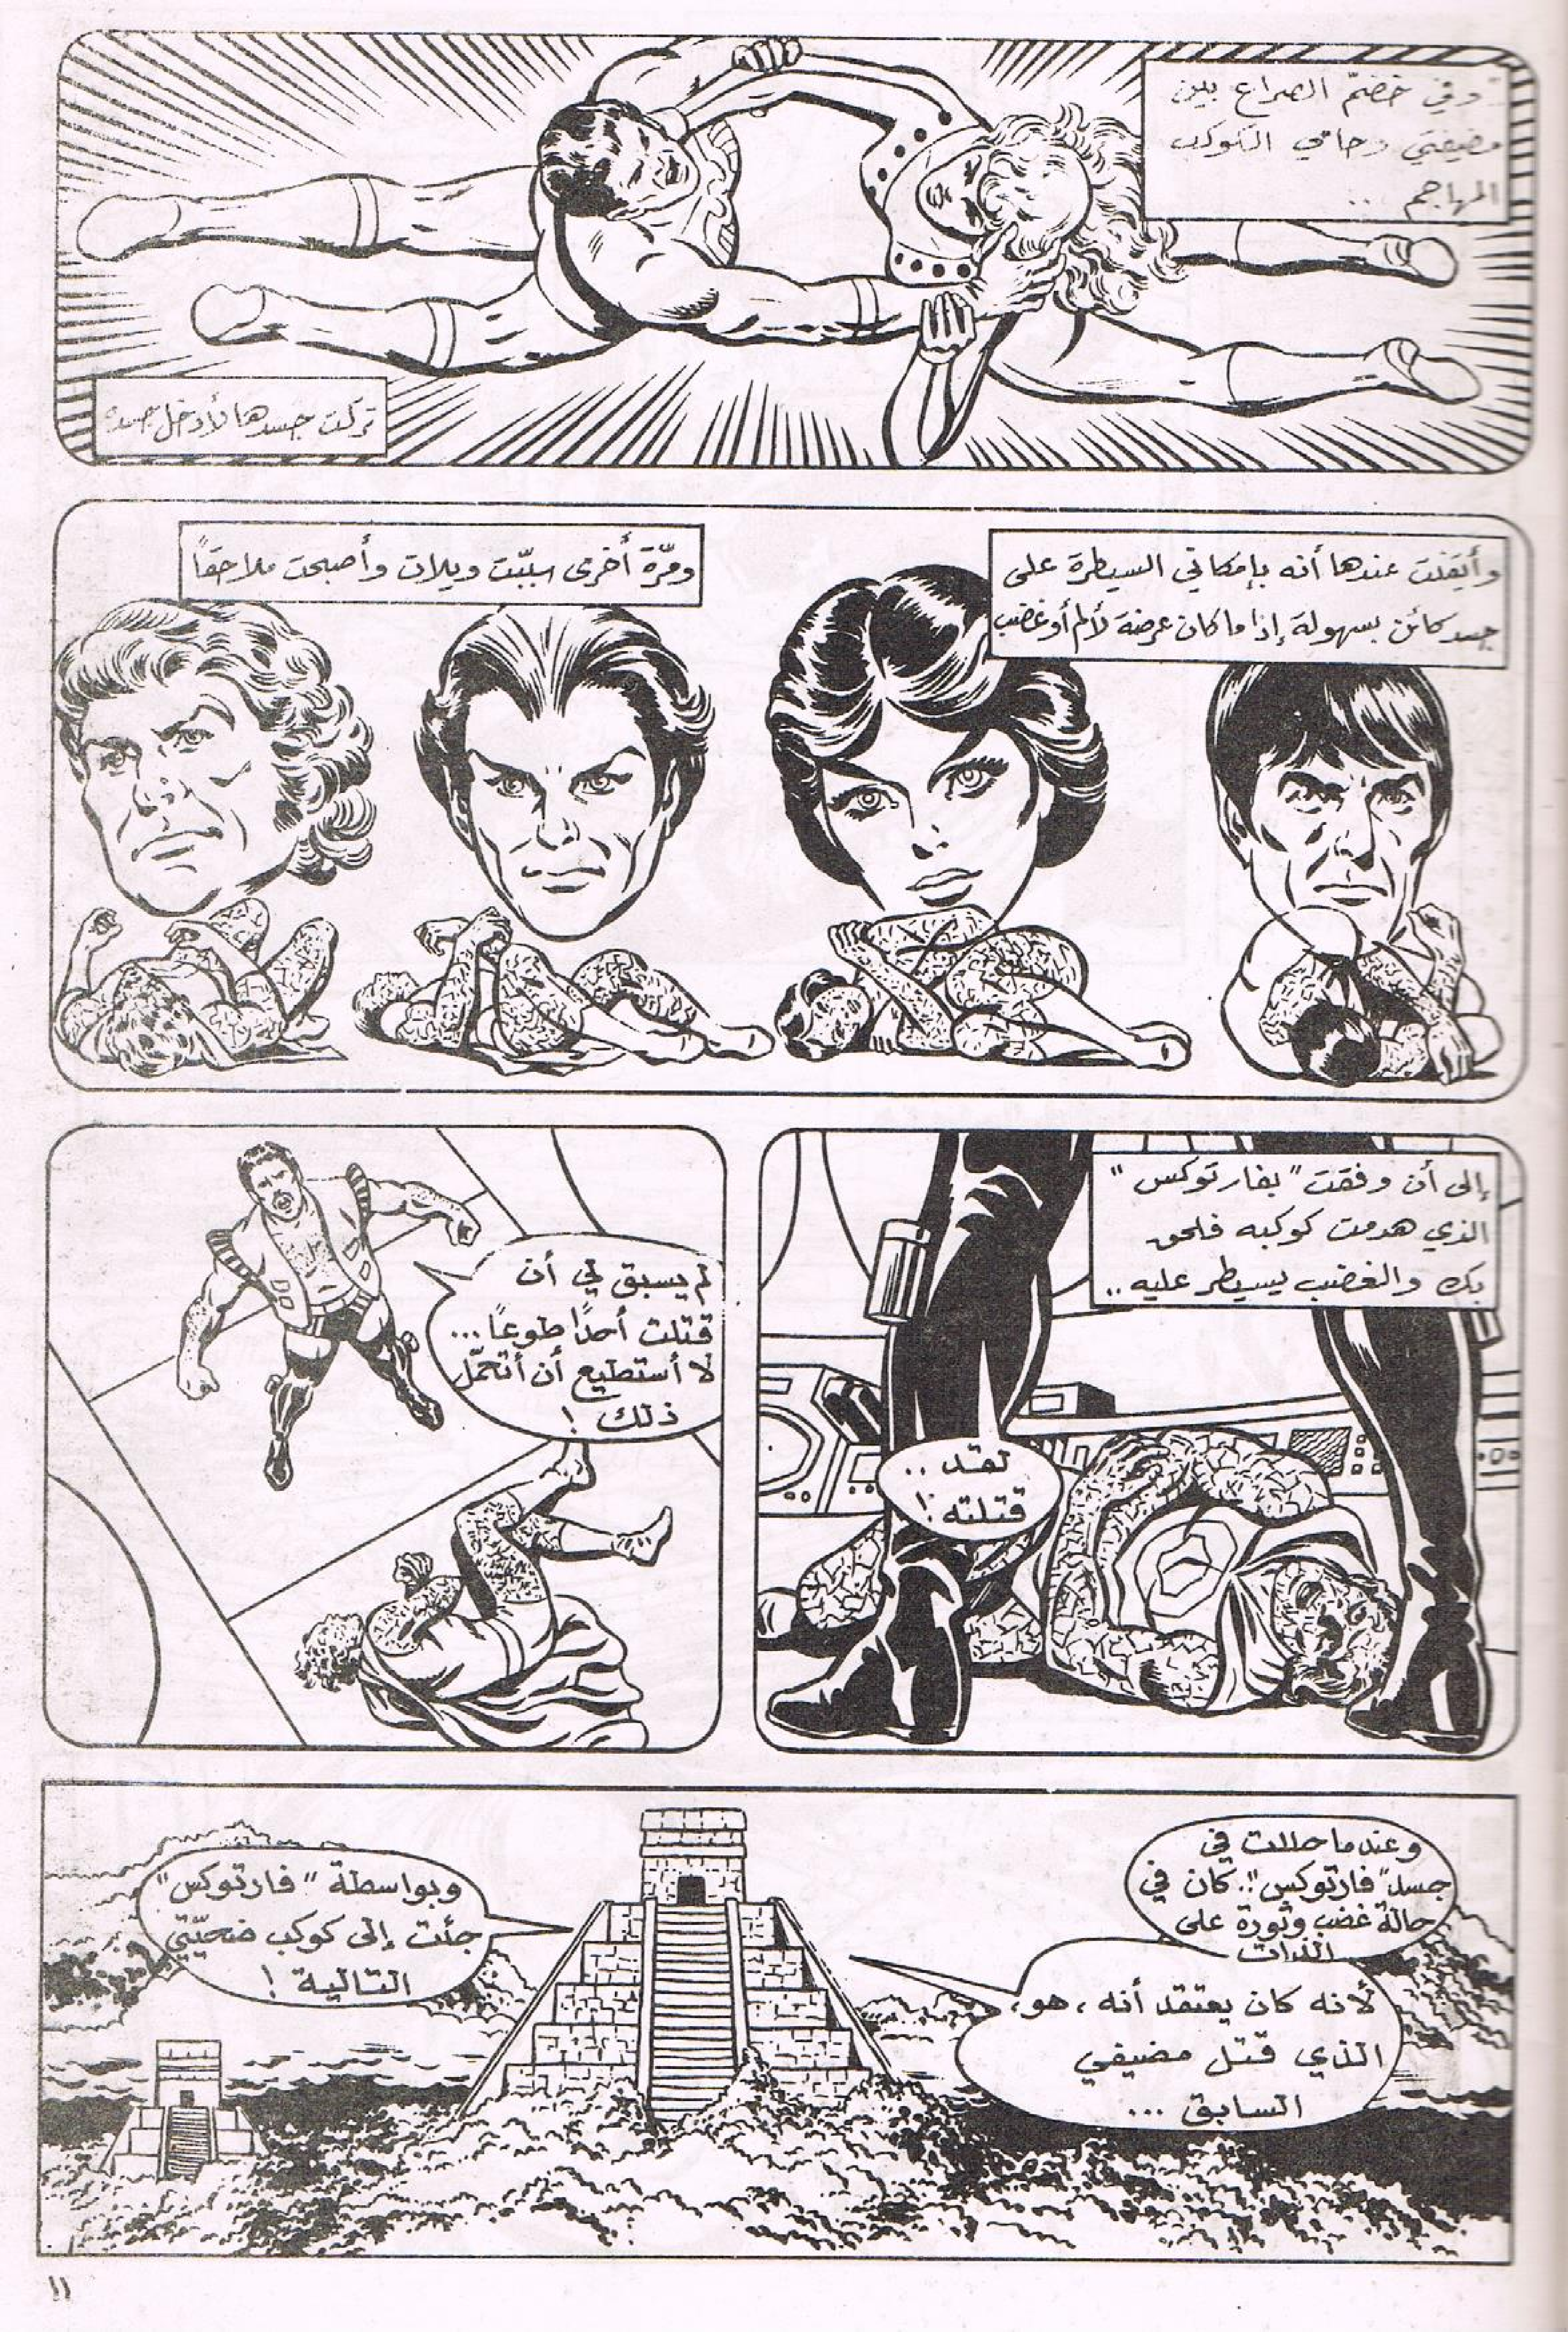 وفي خضمّ الصراع بين
مضيفتي وحامي الكوكب
المهاجم ..
تركت جسدها لأدخل جسده
وأيقنت عندها أنه بإمكاني السيطرة على
جسد كائن بسهولة إذا ما كان عرضة لألم أو غضب
ومرّة أخرى سبّبت ويلات وأصبحت ملاحقاً
إلى أن وفقت "بفارتوكس"
الذي هدمت كوكبه فلحق
بك والغضب يسيطر عليه ..
لقد ..
قتلته !
لم يسبق لي أن
قتلت أحدًا طوعًا ...
لا أستطيع أن أتحمّل
ذلك !
وعندما حللت في
جسد "فارتوكس" .. كان في
حالة غضب وثورة على
الذات
لأنه كان يعتقد أنه ، هو ،
الذي قتل مضيفي
السابق ...
وبواسطة "فارتوكس"
جئت إلى كوكب ضحيّتي
التالية !
١١